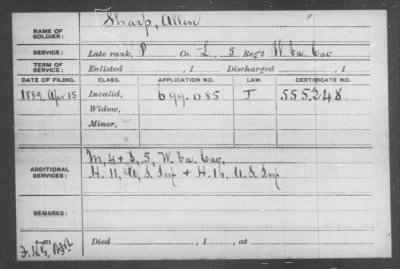 NAME OF SOLDIER: Sharp, Allen
SERVICE: Late rank, P Co. L, 5 Reg't W. Va. Cav
TERM OF SERVICE: Enlisted , 1 Discharged , 1
DATE OF FILING. CLASS. APPLICATION NO. LAW. CERTIFICATE NO.
1889, Apr 15 Invalid, 699.085 J 555.248
Widow,
Minor,
ADDITIONAL SERVICES: 5, W. Va. Cav,
H. 11, U, S Inf + H. 16, U. S Inf
REMARKS:
Died , 1 , at